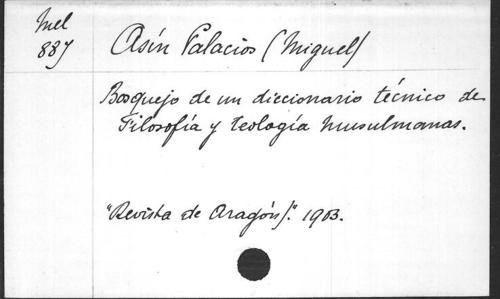 Mel
887
Asín Palacios (Miguel)
Bosquejo de un diccionario técnico de
Filosofía y teología musulmanas.
"Revista de Aragón)." 1903.